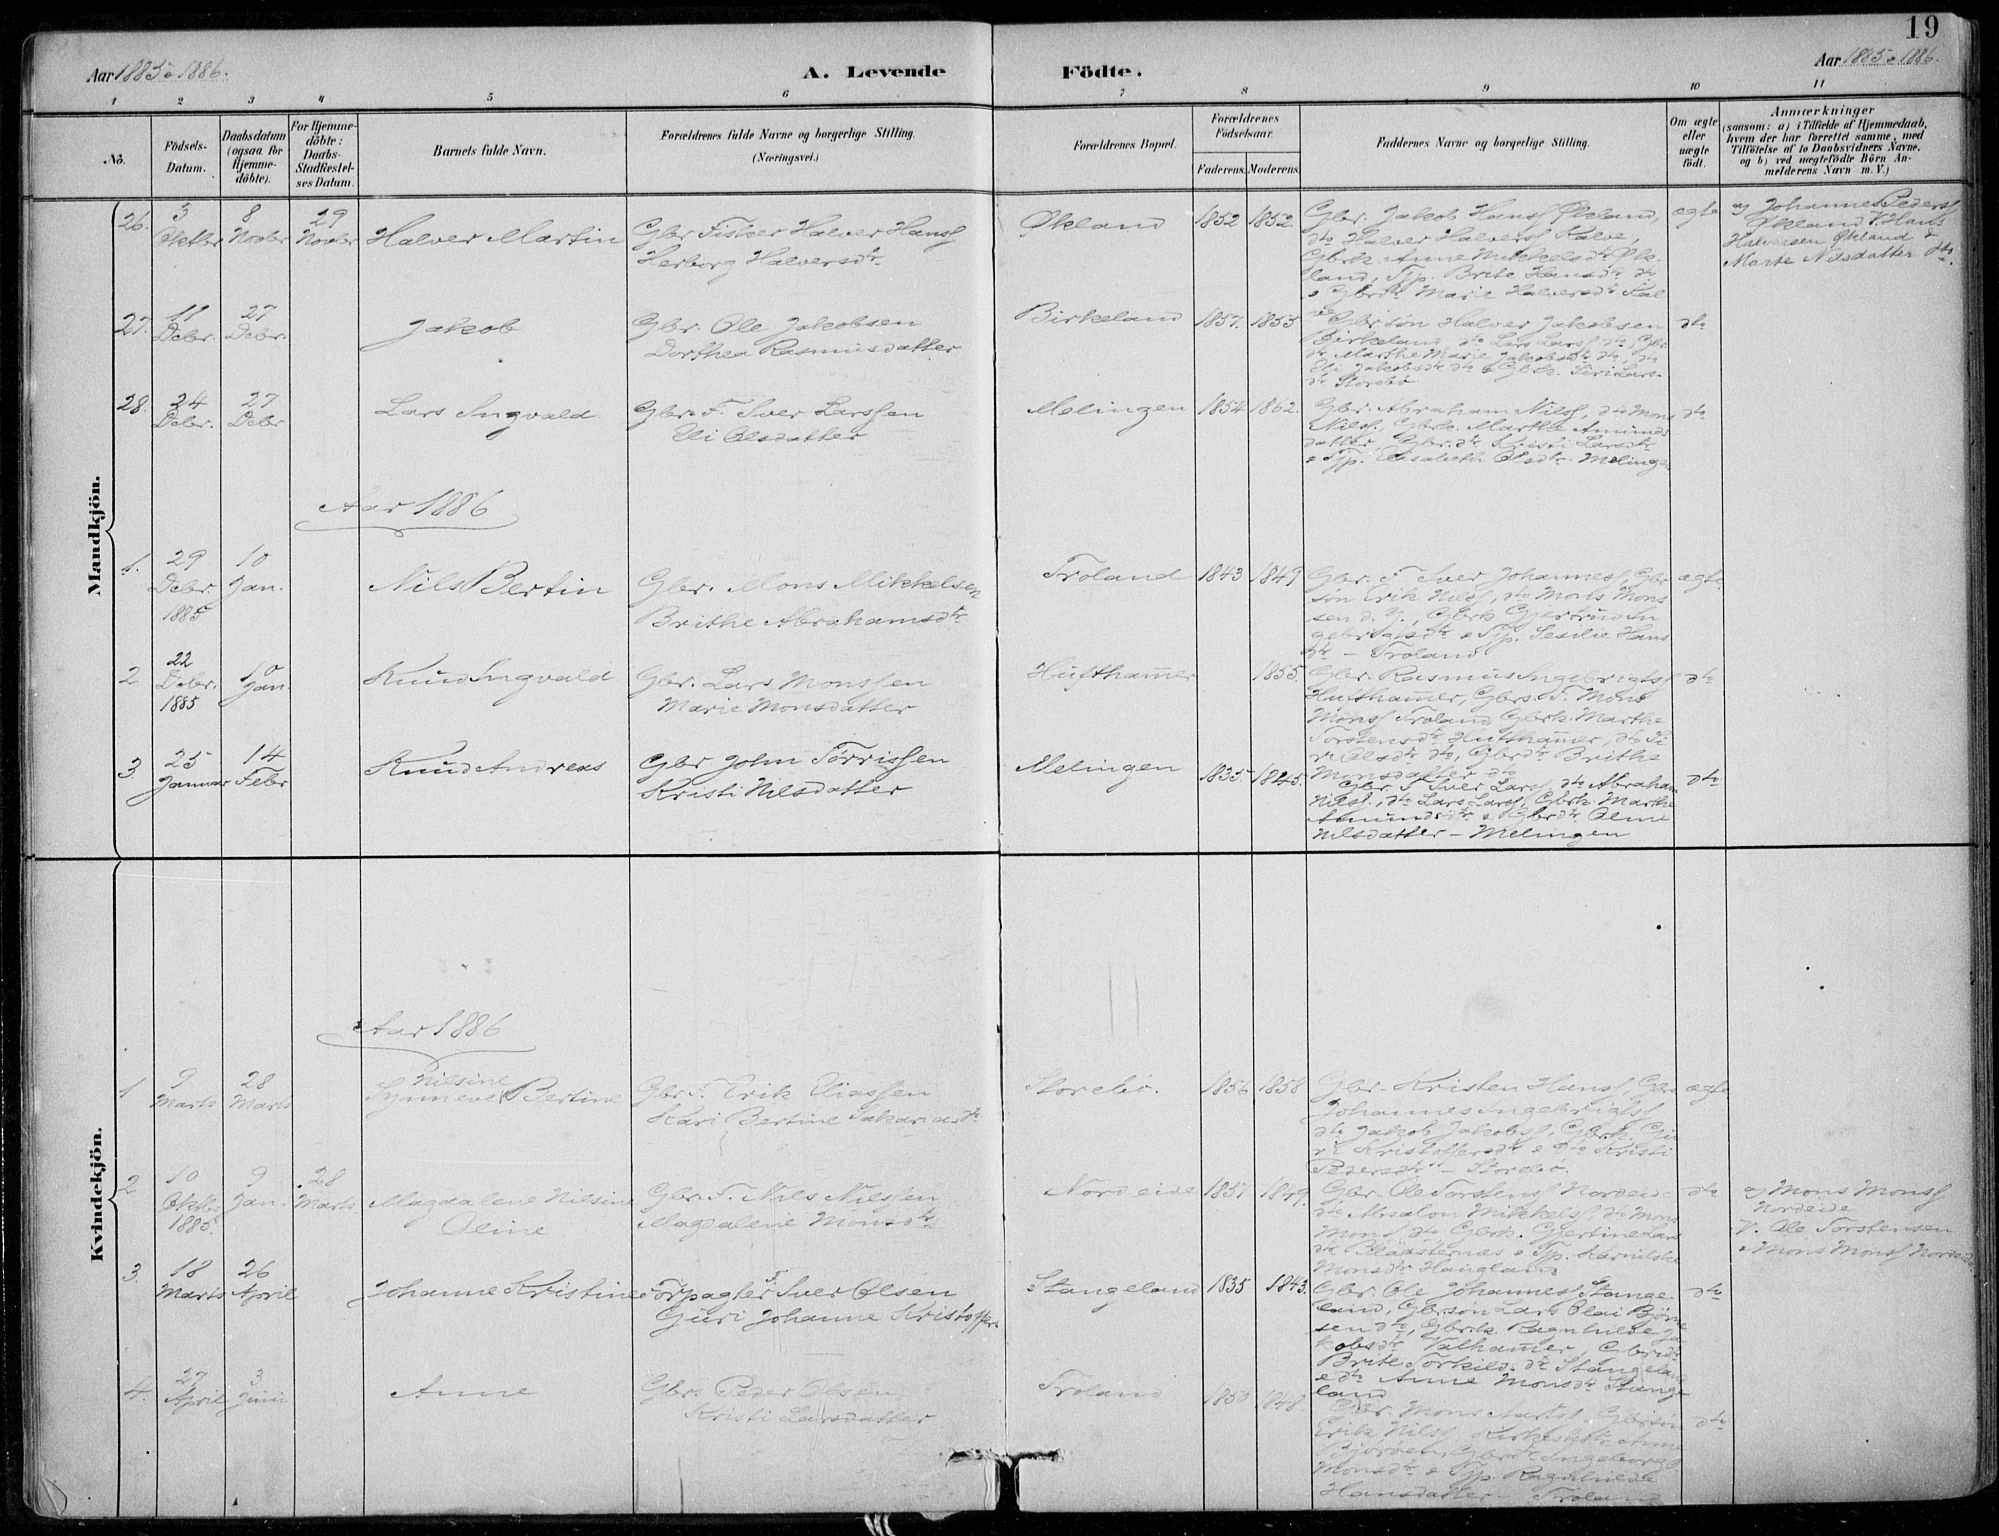 19
Aar 1885 o 1886.
A. Levende
Födte.
Aar 1885 o 1886.
1 2 3 4 5 6 7 8 9 10 11
No.
Födsels-
Datum.
Daabsdatum
(ogsaa for
Hjemme-
döbte).
For Hjemme-
döbte:
Daabs-
Stadfæstel-
ses Datum.
Barnets fulde Navn.
Forældrenes fulde Navne og borgerlige Stilling.
(Næringsvei.)
Forældrenes Bopæl.
Forældrenes
Födselsaar.
Faderens. Moderens.
Faddernes Navne og borgerlige Stilling.
Om ægte
eller
uægte
födt.
Anmærkninger
(saasom: a) i Tilfælde af Hjemmedaab,
hvem der har forrettet samme, med
Tilföielse af to Daabsvidners Navne,
og b) ved uægtefödte Börn An-
melderens Navn m. V.)
Mandkjön.
26.
3
Oktbr
8
Novbr
29
Novbr
Halver Martin
Gbr Fisker Halver Hanss
Herborg Halversdtr
Økland
1852
1852
Gbr. Jakob Hanss Økland,
dto Halver Halverss Kalve,
Gbrk. Anne Mikkelsdtr Øk-
land, Tjp. Brite Hansdtr dto
o Gbrdtr Marie Halversdtr Kal
ve
ægte
a) Johannes Pederss
Økland V. Hans
Halversen Økland &
Marte Nilsdatter dto.
27.
11
Debr.
27
Debr.
Jakob
Gbr. Ole Jakobsen
Dorthea Rasmusdatter
Birkeland
1857.
1855
Gbr. Søn Halver Jakobsen
Birkeland, dto Lars Larss dto, Gbr.
dtr Marthe Marie Jakobsdtr dto, dto
Eli Jakobsdtr dto o Gbrk. Siri Lars-
dtr Storebø
dto
28.
24
Debr.
27
Debr
Lars Ingvald
Gbr. F. Iver Larssen
Eli Olsdatter
Melingen
1854
1862.
Gbr. Abraham Nilss, dto Mons
Nilss, Gbrk. Marthe Amunds
datter, Gbr.dtr Kristi Larsdtr
o Tjp. Elisabeth Olsdtr. Melingen
dto
Aar 1886
1.
29
Debr.
1885
10
Jan.
Nils Bertin
Gbr. Mons Mikkelsen
Brithe Abrahamsdtr
Troland
1843
1849
Gbr. F Iver Johanness, Gbr
søn Erik Nilss, dto Mons Mons
sen d. Y., Gbrk Gjertrud In
gebrigtsdtr o Tjp. Sesilie Hans
dtr – Troland
ægte
2
22
Debr.
1885
10
Jan
Knud Ingvald
Gbr. Lars Monssen
Marie Monsdatter
Hufthamer
1855.
Gbr. Rasmus Ingebrigts
Hufthamer, Gbrs. F. Mons
Monss Troland, Gbrk. Marthe
Torstensdtr Hufthamer, dto Si
ri Olsdtr dto, Gbrdtr Brithe
Monsdatter dto
dto
3
25
Januar
14
Febr
Knud Andreas
Gbr John Torrissen
Kristi Nilsdatter
Melingen
1835
1845.
Gbr. F Iver Larss, dto Abraham
Nilss, dto Lars Larss, Gbrk. Marthe
Amundsdtr o Gbrdtr Oline
Nilsdatter – Melingen
dto
Kvindekjön.
Aar 1886
1
9
Marts
28
Marts
Nilsine
Synneve Bertine
Gbr. F. Erik Eliassen
Kari Bertine Sakariasdtr
Storebø.
1856
1858
Gbr. Kristen Hanss, Gbr
Johannes Ingebrigtss
dto Jakob Jakobss, Gbrk. Gu
ri Kristoffersdtr o dto Kristi
Pedersdtr – Storebø.
ægte
2
10
Oktbr
1885.
9
Jan.
28
Marts
Magdalene Nilsine
Oline
Gbr. F. Nils Nilssen
Magdalene Monsdtr
Nordeide
1857
1849.
Gbr. Ole Torstenss Nordeide
dto Absalon Mikkelss, dto Mons
Monss dto Gbrk. Gjertine Lars
dtr
Monsdtr Haugland
dto
a) Mons Monss
Nordeide
V. Ole Torstensen
o Mons Monss Nordeide
3.
18
Marts
26
April
Johanne Kristine
Torpagter F. Iver Olsen
Guri Johanne Kristoffers
Stangeland
1835
1843.
Gbr. Ole Johanness Stange
land, Gbrsøn Lars Olai Bjørne
sen dto, Gbrk. Ragnhilde Ja
kobsdtr Valhamer, Gbrdtr
Brite Torkilds.dtr Stangeland
o dto Anne Monsdtr Stange
land
dto
4.
27
April
3
Juni
Anne
Gbr. Peder Olsen
Kristi Larsdatter
Troland
1850
1848
Gbr. Mons Gbrsøn
Erik Nilss, Anne
Gbrdtr Ingeborg
Monsdtr o Tjp. Ragnhilde
Hansdatter – Troland
dto